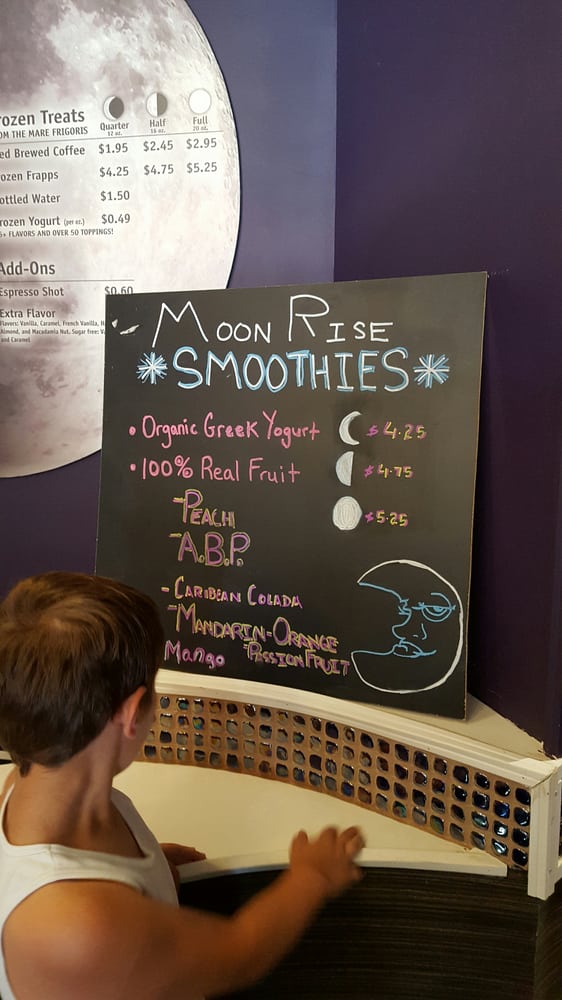 rozen Treats
OM THE MARE FRIGORIS
Quarter Half Full
12 oz. 16 oz. 20 oz.
ed Brewed Coffee $1.95 $2.45 $2.95
ozen Frapps $4.25 $4.75 $5.25
ottled Water $1.50
rozen Yogurt (per oz.) $0.49
+ FLAVORS AND OVER 50 TOPPINGS!
Add-Ons
Espresso Shot $0.60
Extra Flavor
Flavors: Vanilla, Caramel, French Vanilla, H
Almond, and Macadamia Nut, Sugar free: V
and Caramel
MOON RISE
*SMOOTHIES*
• Organic Greek Yogurt $4.25
• 100% Real Fruit $4.75
- PEACH $5.25
- A.B.P.
- CARIBEAN COLADA
- MANDARIN-ORANGE
Mango - PASSION FRUIT